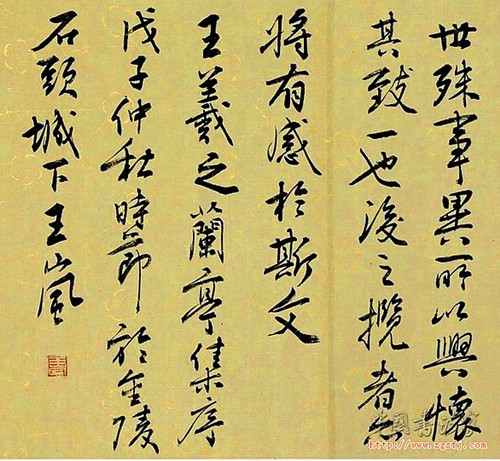 世殊事異所以興懷
其致一也後之攬者亦
將有感於斯文
王羲之蘭亭集序
戊子仲秋時節於金陵
石頭城下王嵐